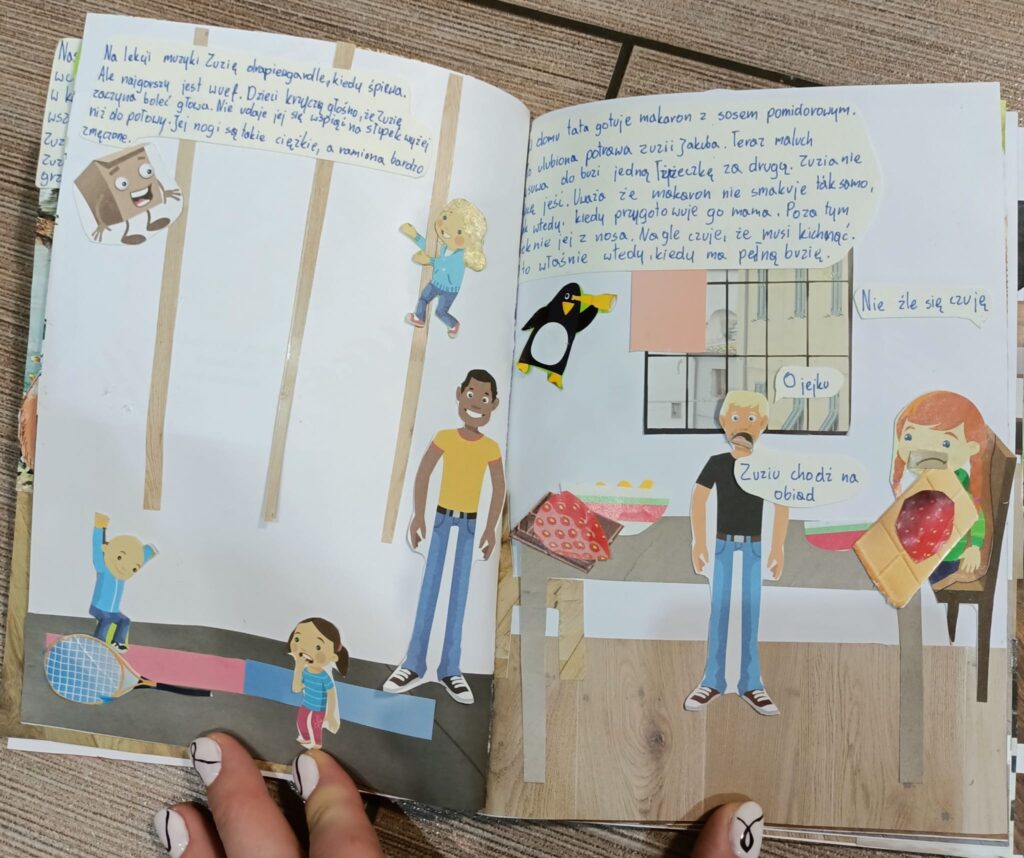 Nas
w k
wsz
Zuz
Zuz
Na lekcji muzyki Zuzię drapiengardle, kiedy śpiewa.
Ale najgorszy jest wuef. Dzieci krzyczą głośno, że Zuzię
zaczyna boleć głowa. Nie udaje jej się wspiąć na słupek wyżej
niż do połowy. Jej nogi są takie ciężkie, a ramiona bardzo
zmęczone.
domu tata gotuje makaron z sosem pomidorowym.
o ulubiona potrawa zuzii Jakuba. Teraz maluch
suwa do buzi jedną łyżeczkę za drugą. Zuzia nie
cę jeść. Uważa że makaron nie smakuje tak samo,
k wtedy, kiedy przygotowuje go mama. Poza tym
eknie jej z nosa. Nagle czuje, że musi kichnąć.
to właśnie wtedy, kiedy ma pełną buzię.
Nie źle się czują
O jejku
Zuziu chodź na
obiad